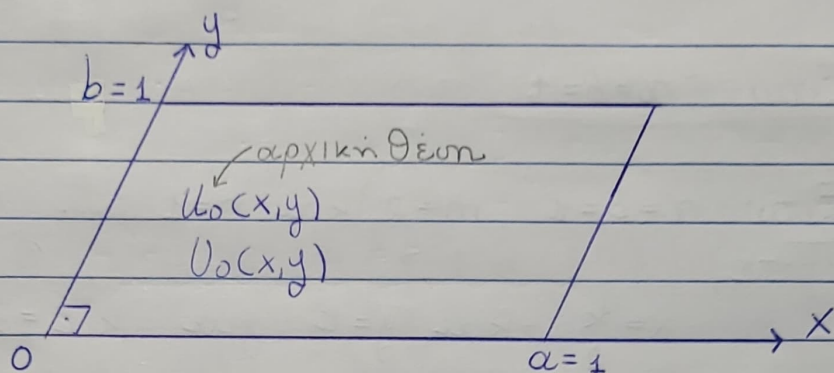 y
b = 1
αρχική θέση
u₀(x,y)
U₀(x,y)
0
a = 1
x